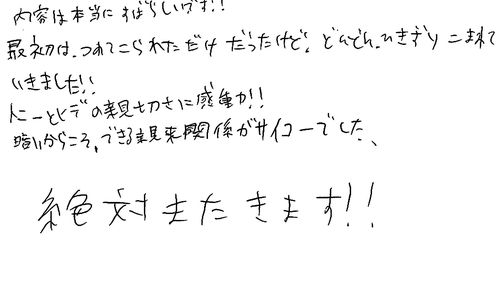 内容は本当にすばらしいです!!
最初は、つれてこられただけだったけど、どんどん、ひきずりこまれて
いきました!!
人とヒデの親切さに感動!!
暗いからこそ、できる親来関係がサイコーでした、
絶対またきます!!